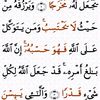 يَجْعَل لَّهُۥ مَخْرَجًا ۝ وَيَرْزُقْهُ مِنْ
حَيْثُ لَا يَحْتَسِبُ ۚ وَمَن يَتَوَكَّلْ
عَلَى ٱللَّهِ فَهُوَ حَسْبُهُۥٓ ۚ إِنَّ ٱللَّهَ
بَٰلِغُ أَمْرِهِۦ ۚ قَدْ جَعَلَ ٱللَّهُ لِكُلِّ
شَىْءٍ قَدْرًا ۝ وَٱلَّٰٓـِٔى يَئِسْنَ